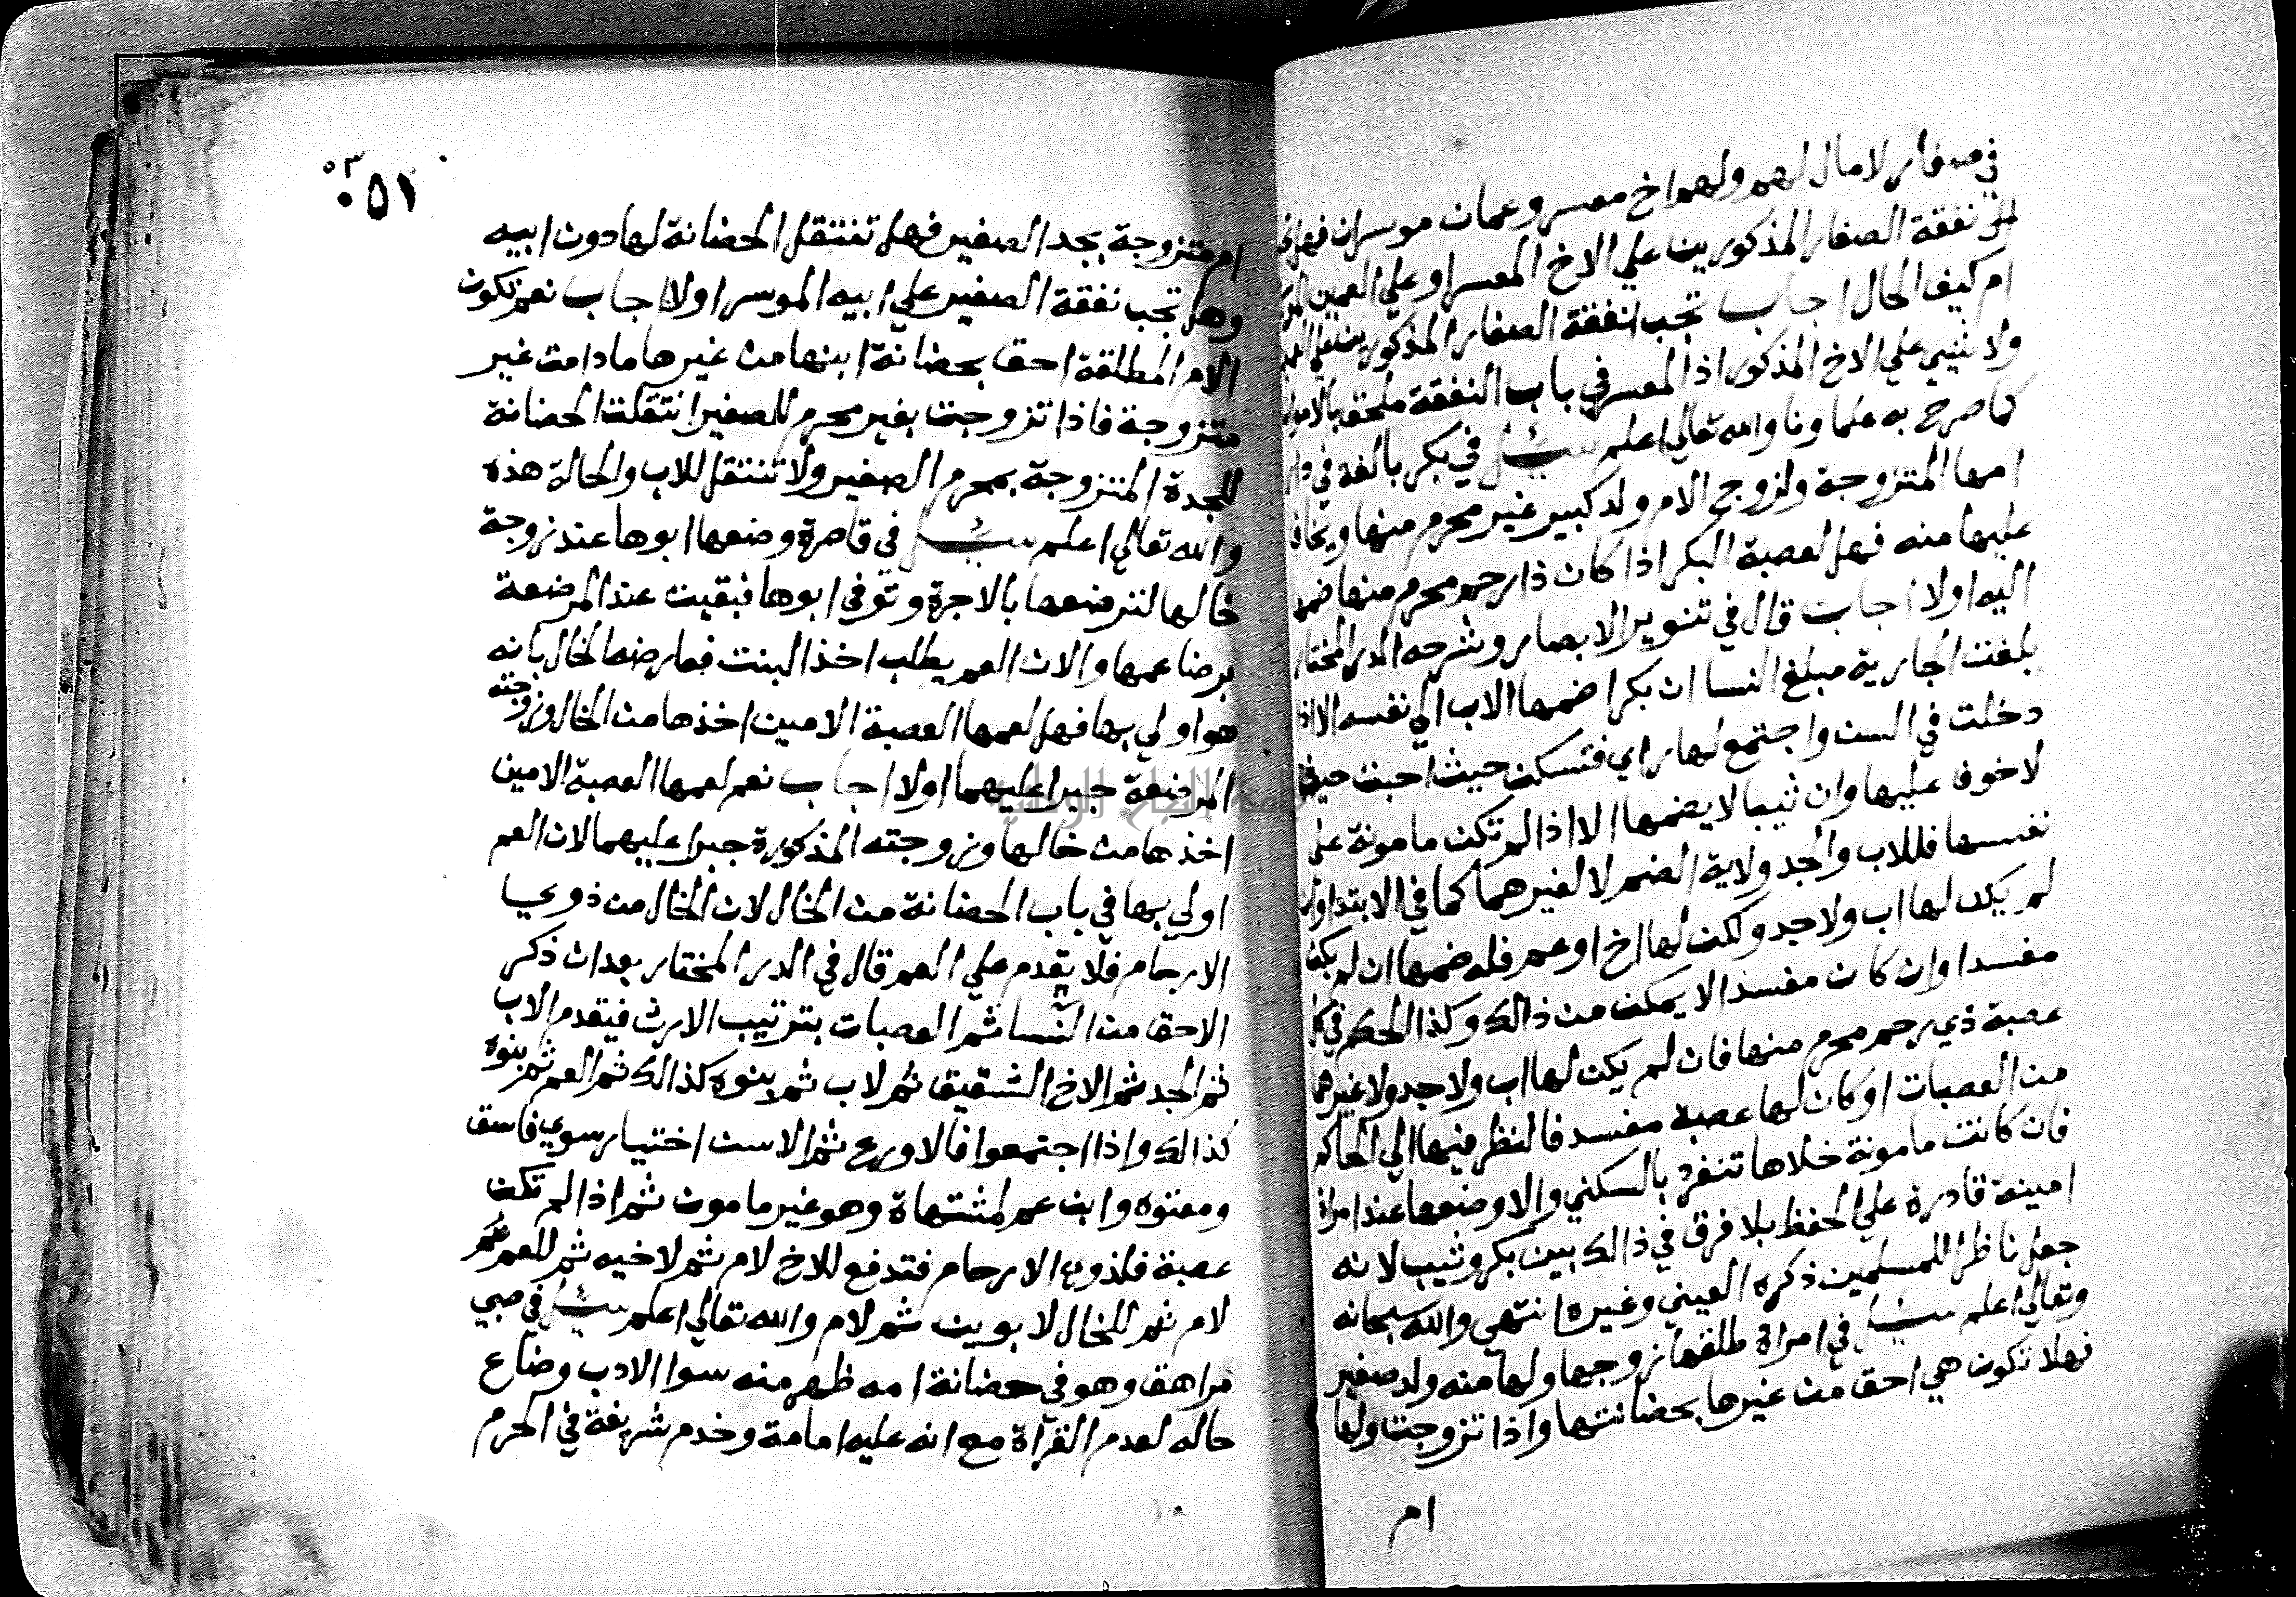 في صغار لا مال لهم ولهم اخ معسر وعمان موسران فهل
نفقة الصغار المذكورين علي الاخ المعسر او علي العمين
ام كيف الحال اجاب تجب نفقة الصغار المذكورين علي
ولا شيء علي الاخ المذكور اذ المعسر في باب النفقة ملحق بالاموات
كما صرح به علماونا والله تعالي اعلم سئل في بكر بالغة في دار
امها المتزوجة ولزوج الام ولد كبير غير محرم منها ويخاف
عليها منه فهل لعصبة البكر اذا كان ذا رحم محرم منها ضمها
اليه اولا اجاب قال في تنوير الابصار وشرحه الدر المختار
بلغت الجارية مبلغ النسا ان بكرا ضمها الاب الي نفسه الا اذا
دخلت في السن واجتمع لها راي فتسكن حيث احبت حيث
لا خوف عليها وان ثيبا لا يضمها الا اذا لم تكن مامونة علي
نفسها فللاب والجد ولاية الضم لا لغيرهما كما في الابتدا وان
لم يكن لها اب ولا جد ولكن لها اخ او عم فله ضمها ان لم يكن
مفسدا وان كان مفسدا لا يمكن من ذالك وكذا الحكم في كل
عصبة ذي رحم محرم منها فان لم يكن لها اب ولا جد ولا غيرهما
من العصبات او كان لها عصبة مفسد فالنظر فيها الي الحاكم
فان كانت مامونة خلاها تنفرد بالسكني والا وضعها عند امراة
امينة قادرة علي الحفظ بلا فرق في ذالك بين بكر وثيب لانه
جعل ناظرا للمسلمين ذكره العيني وغيره انتهي والله سبحانه
وتعالي اعلم سئل في امراة طلقها زوجها ولها منه ولد صغير
فهل تكون هي احق من غيرها بحضانتها واذا تزوجت ولها
ام
٠٥١
ام متزوجة بجد الصغير فهل تنتقل الحضانة لها دون ابيه
وهل تجب نفقة الصغير علي ابيه الموسر اولا اجاب نعم تكون
الام المطلقة احق بحضانة ابنها من غيرها ما دامت غير
متزوجة فاذا تزوجت بغير محرم للصغير انتقلت الحضانة
للجدة المتزوجة بمحرم الصغير ولا تنتقل للاب والحالة هذه
والله تعالي اعلم سئل في قاصرة وضعها ابوها عند زوجة
خالها لترضعها بالاجرة وتوفي ابوها فبقيت عند المرضعة
برضا عمها والان العم يطلب اخذ البنت فعارضه الخال بانه
هو اولي بها فهل لعمها العصبة الامين اخذها من الخال وزوجته
المرضعة جبرا عليهما اولا اجاب نعم لعمها العصبة الامين
اخذها من خالها وزوجته المذكورة جبرا عليهما لان العم
اولي بها في باب الحضانة من الخال لان الخال من ذوي
الارحام فلا يقدم علي العم قال في الدر المختار بعد ان ذكر
الاحق من النسا ثم العصبات بترتيب الارث فيقدم الاب
ثم الجد ثم الاخ الشقيق ثم لاب ثم بنوه كذالك ثم العم ثم بنوه
كذالك واذا اجتمعوا فالاورع ثم الاسن اختيار سوي فاسق
ومعتوه وابن عم لمشتهاة وهو غير مامون ثم اذا لم تكن
عصبة فلذوي الارحام فتدفع للاخ لام ثم لاخيه ثم للعم
لام ثم للخال لابوين ثم لام والله تعالي اعلم سئل في صبي
مراهق وهو في حضانة امه ظهر منه سوا الادب وضاع
حاله لعدم القرآة مع انه عليه امامة وخدم شريفة في الحرم